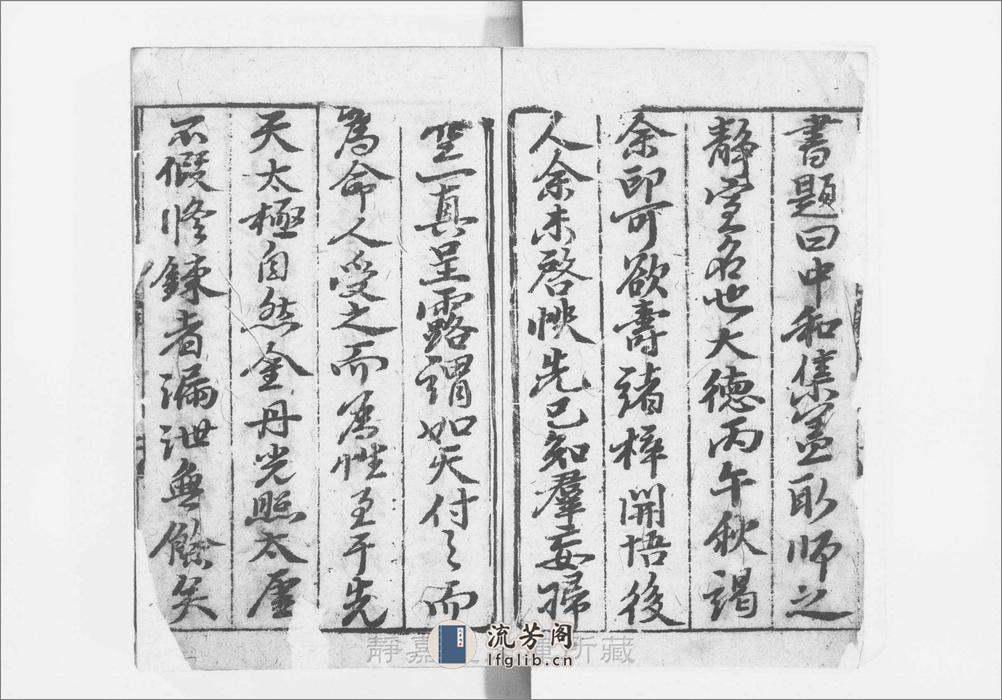 書題曰中和集蓋取師之
靜室名也大德丙午秋謁
余印可欲壽諸梓開悟後
人余未啓帙先已知羣妄掃
空一真呈露謂如天付之而
為命人受之而為性至于先
天太極自然金丹光照太虛
不假修鍊者漏泄無餘矣
流芳阁
lfglib.cn
靜嘉堂文庫所藏